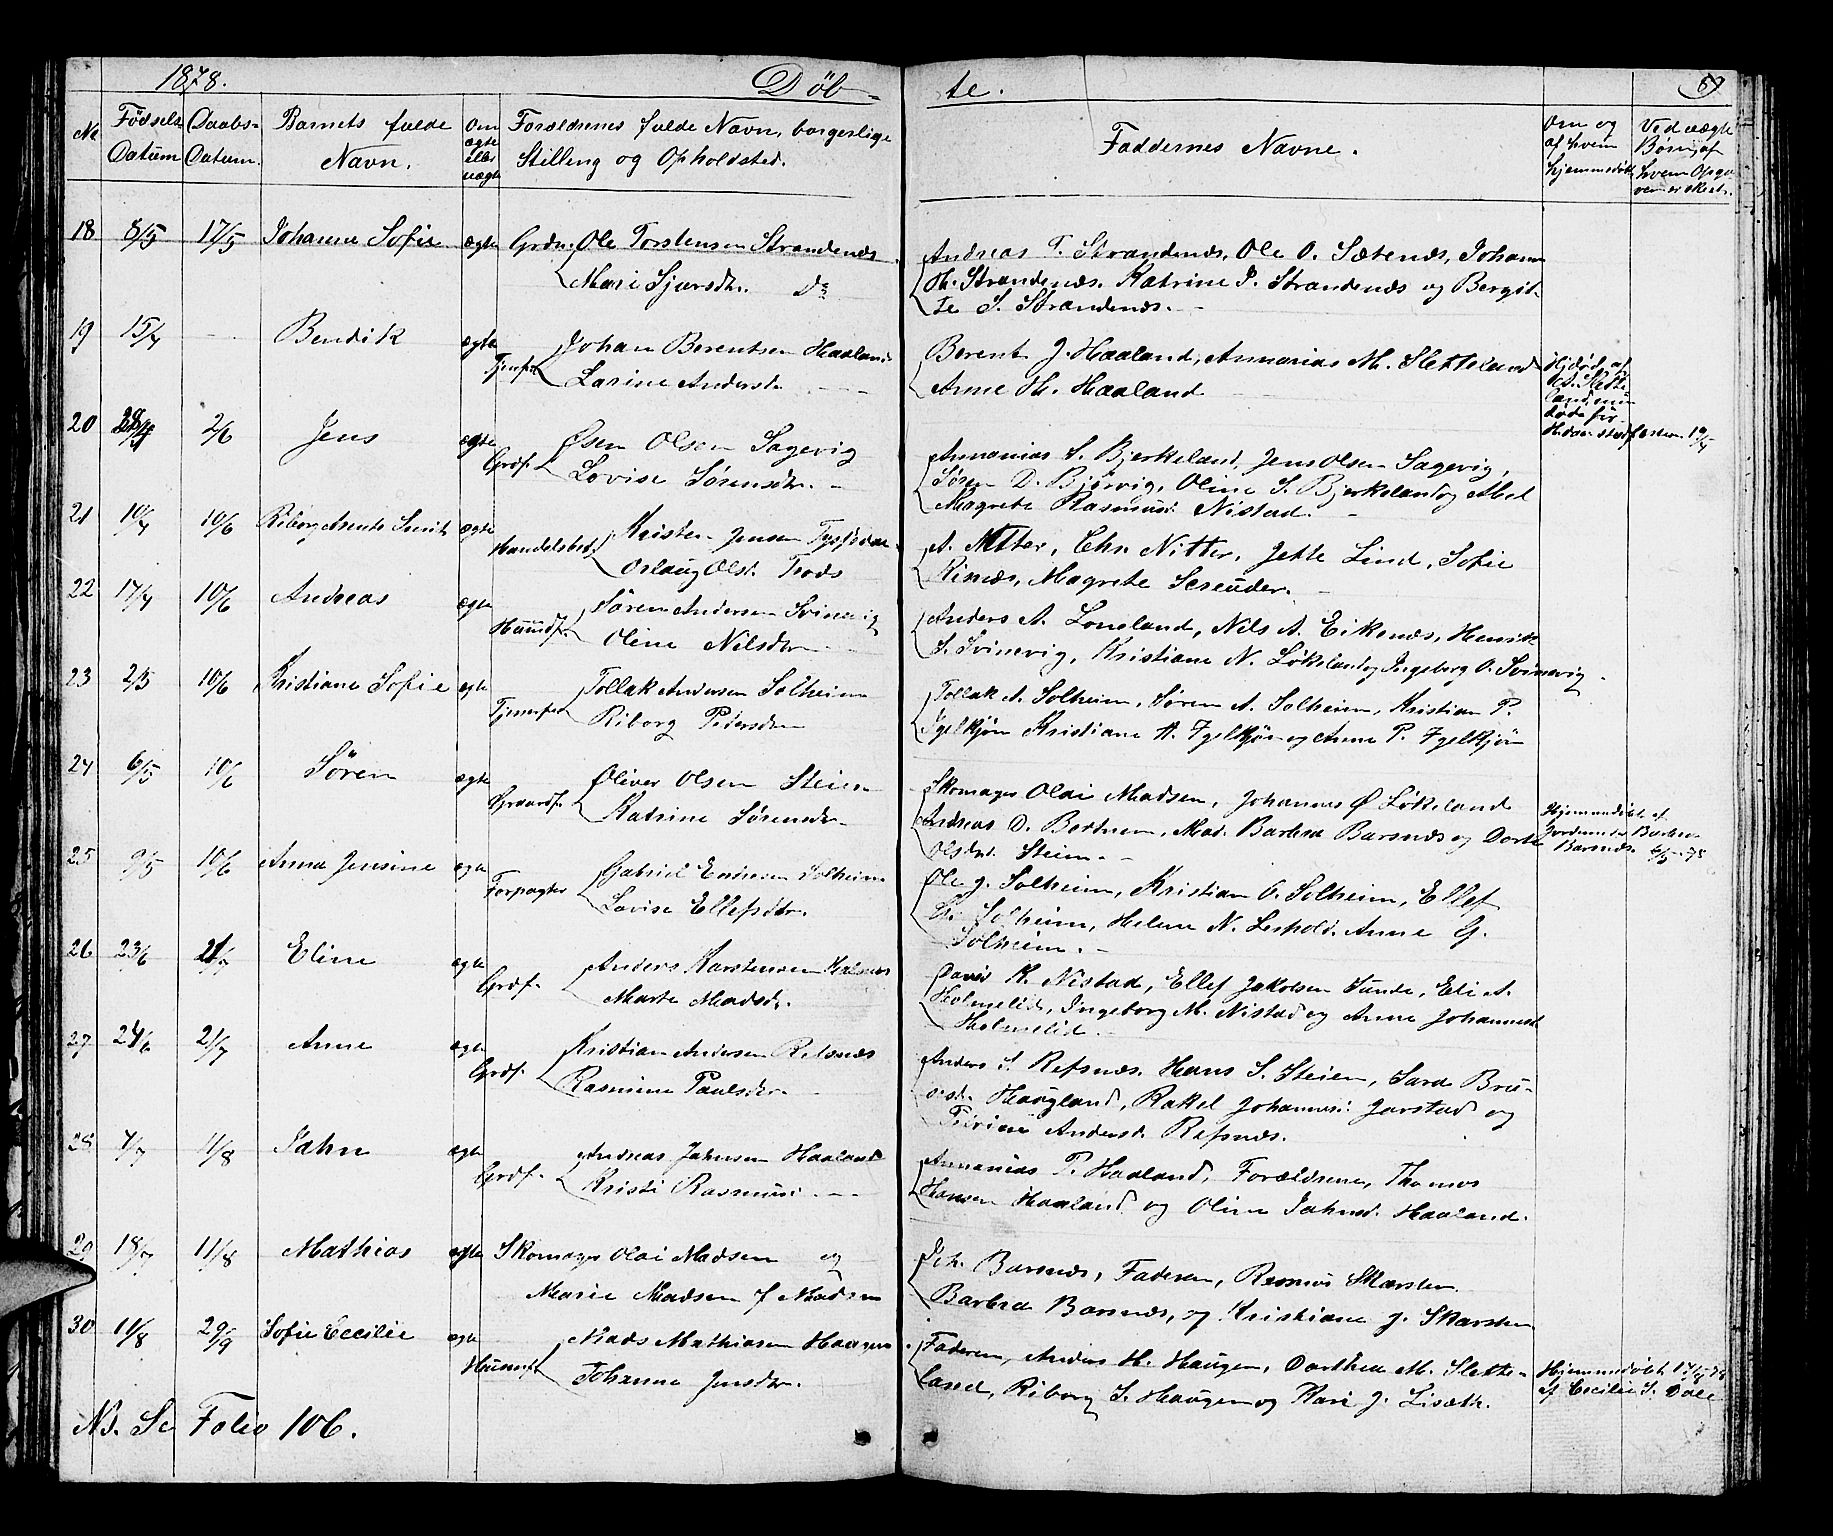 1878. Døb- te. 89
No Fødsels Datum Daabs- Datum. Barnets fulde Navn. Om ægte eller uægte Forældrenes fulde Navn, borgerlige Stilling og Opholdsted. Faddernes Navne. Om og af hvem hjemmedøbt Ved uægte Børn, af hvem Opga- ven er skeet.
18 8/5 17/5 Johanne Sofie ægte Grdm. Ole Torstensen Strandenæs
Mari Sjursdtr. Ds
Andreas T. Strandenæs, Ole O. Sætenæs, Johann
H. Strandenæs. Katrine J. Strandenæs og Bergit-
te S. Strandenæs.
19 15/4 - Bendik ægte Tjenfol Johan Berentsen Haaland
Larine Andersdr.
Berent J. Haaland, Annanias M. Sletteland
Anne H. Haaland
Hjdøbt af
Slette-
land, men
døde før
20 2/6 Jens ægte Grdf. Øsen Olsen Sagevig
Lovise Sørensdr.
Annanias S. Bjerkeland, Jens Olsen Sagevig,
Søren D. Bjørvig, Oline S. Bjerkeland og Abel
Magrete Rasmusd. Nistad.
21 10/4 10/6 Riborg Agente Smith ægte Handelsbet. Kristen Jensen
Oslaug Olsd. Thods
A. Nitter, Chr. Nitter, Jette Lind, Sofie
Risnæs, Magrete Screuder.
22 17/4 10/6 Andreas ægte Huusf. Søren Andersen Svinevig
Oline Nilsdtr
Anders A. Loneland, Nils A. Eikenæs, Henrik
S. Svinevig, Kristiane N. Løkeland og Ingeborg O. Svinevig
23 2/5 10/6 Kristiane Sofie ægte Tjenerfol Tollak Andersen Solheim
Riborg Pedersdtr
Tollak A. Solheim, Søren A. Solheim, Kristian P.
Igelkjøn Kristiane A. Igelkjøn og Anne P. Igelkjøn
24 6/5 10/6 Søren ægte Graardf. Oliver Olsen Steien
Katrine Sørensdr.
Skomager Olai Madsen, Johannes Ø Løkeland
Andreas D. Bortnem, Mad. Barbra Barsnæs og Dorte
Olsdat. Steien.
Hjemmedøbt af
Jordemoder Barbra
Barsnæs 6/5 78
25 9/5 10/6 Anna Jensine ægte Forpagter Gabriel Endresen Solheim
Lovise Ellefsdtr.
Ole G. Solheim, Kristian O. Solheim, Ellef
G. Solheim, Helene N. Leshold. Anne G.
Solheim.
26 23/6 21/7 Eline ægte Grdf. Anders Karstensen
Marte Madsdr.
David K. Nistad, Ellef Jakobsen Sunde, Eli A.
Holmelid, Ingeborg M. Nistad og Anne Johannesd
Holmelid.
27 24/6 21/7 Anne ægte Grdf. Kristian Andersen Refsnæs
Rasmine Paulsdtr.
Anders S. Refsnæs. Hans S. Steien, Sara Bru-
sesd. Haugland, Rakel Johannesd. Jarstad og
Severine Andersd. Refsnæs.
28 4/7 11/8 Jahn ægte Grdf. Andreas Jahnsen Haaland
Kristi Rasmusd.
Annanias P. Haaland, Forældrene, Thomas
Hansen Haaland og Oline Jahnsd. Haaland.
29 18/7 11/8 Mathias ægte Skomager Olai Madsen og
Marie Madsen f Madsen
Joh. Barsnæs, Faderen, Rasmus Skarsten
Barbra Barsnæs, og Kristiane J. Skarsten
30 11/8 29/9 Sofie Cecilie ægte Huusmf. Mads Mathiasen Haugen
Johanne Jensdtr.
Faderen, Anders H. Haugen, Dorthea M. Slette-
land, Riborg S. Haugen og Kari J. Lisæth.
Hjemmedøbt 17/8 78
af Cecilie S. Dale
NB. Se Folio 106.